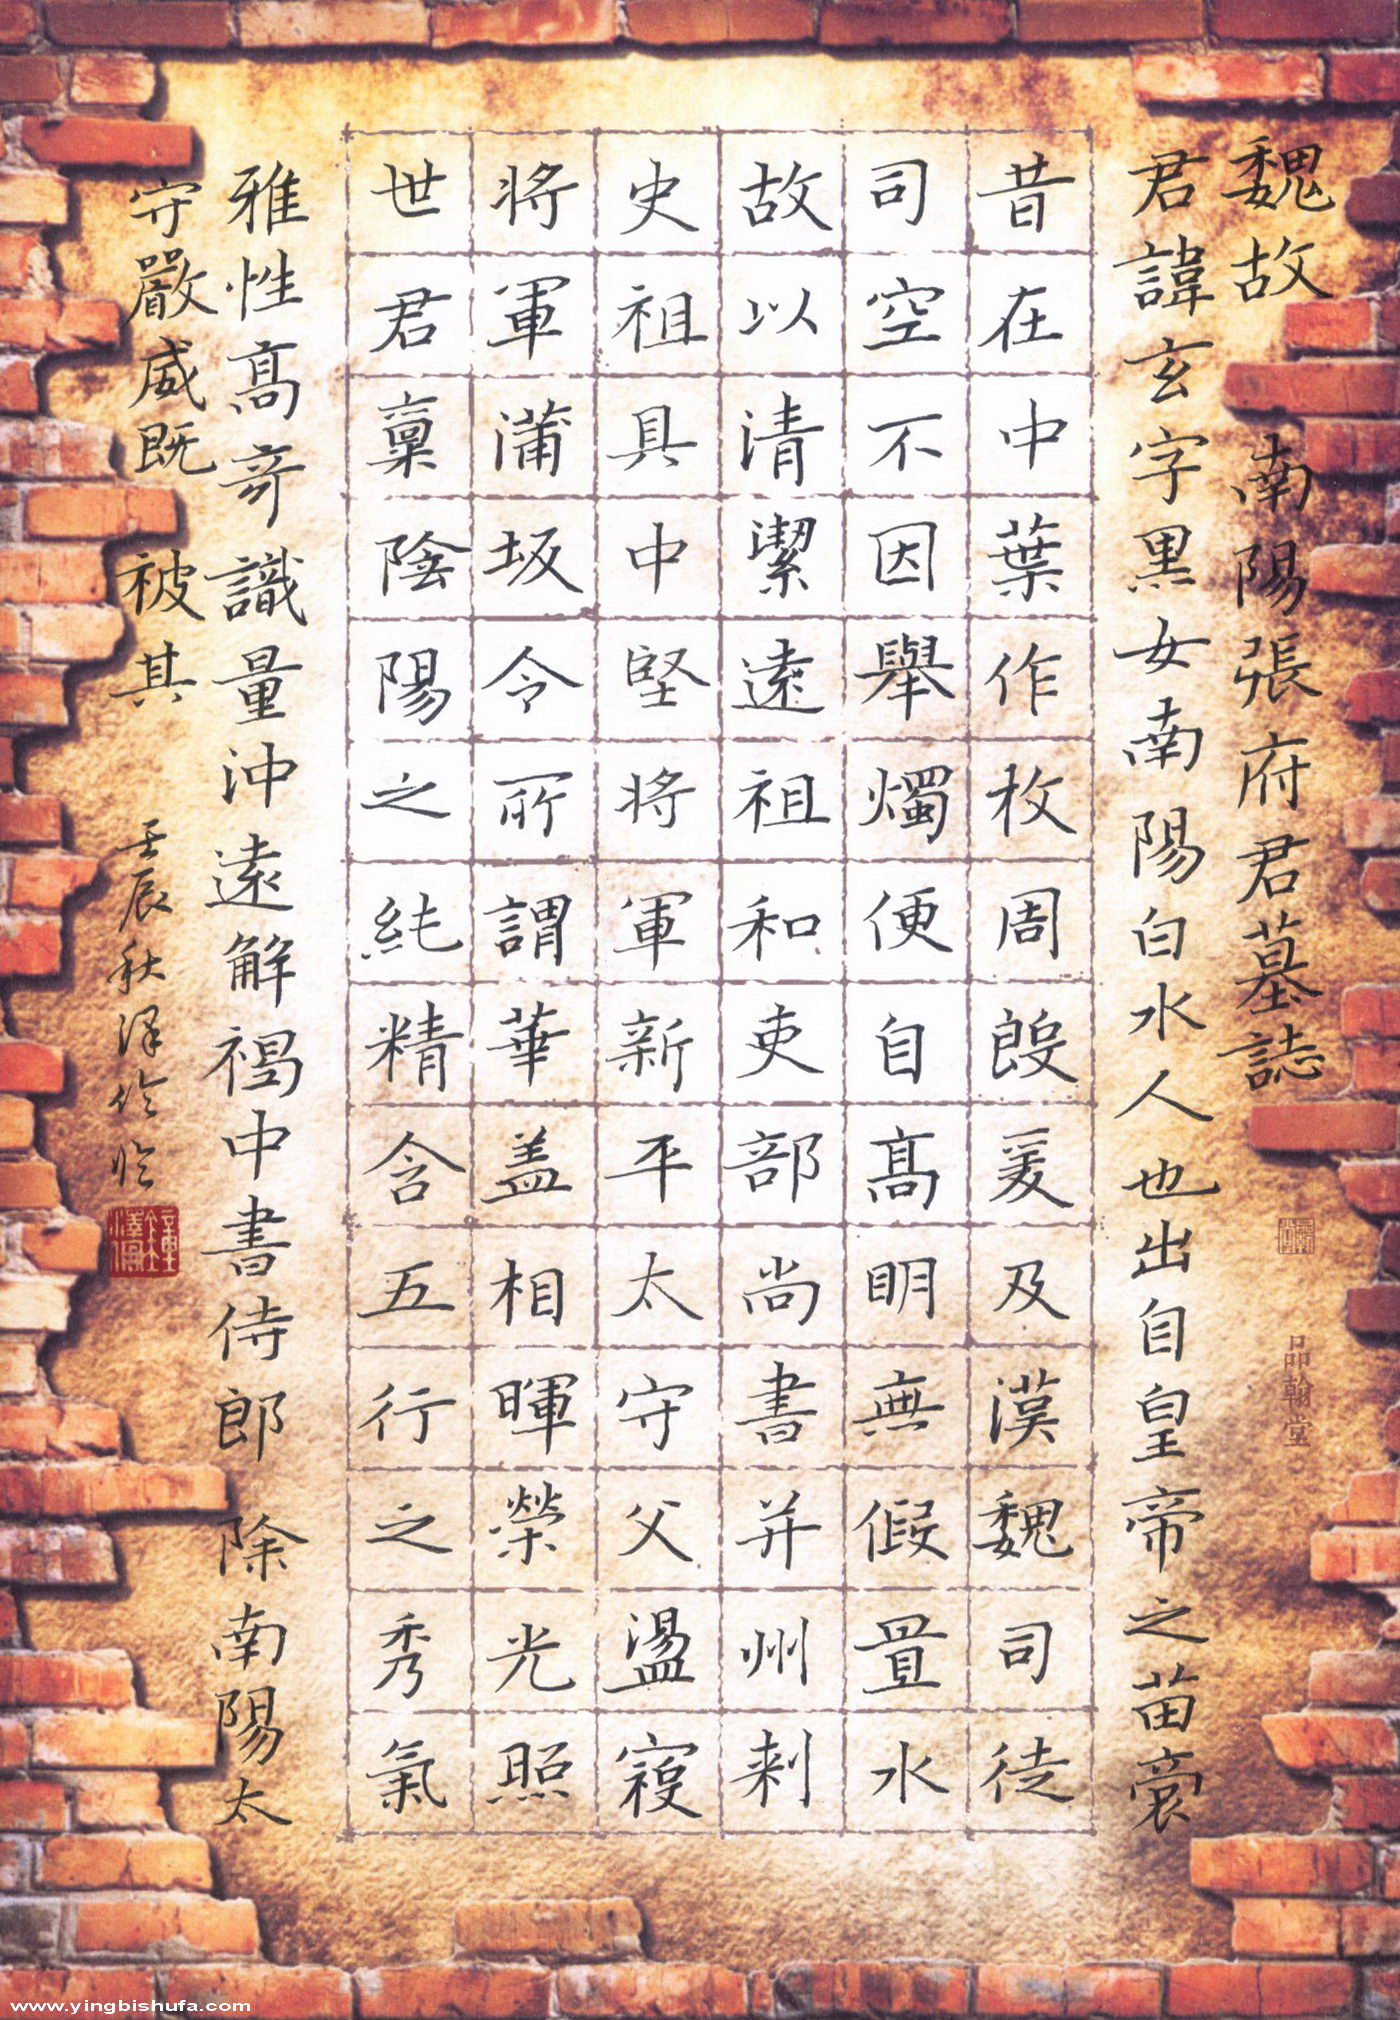 魏故 南陽張府君墓誌
君諱玄字黑女南陽白水人也出自皇帝之苗裔
昔在中葉作牧周殷爰及漢魏司徒
司空不因舉燭便自高明無假置水
故以清潔遠祖和吏部尚書并州刺
史祖具中堅將軍新平太守父盪寇
將軍蒲坂令所謂華盖相暉榮光照
世君稟陰陽之純精含五行之秀氣
雅性高奇識量沖遠解褐中書侍郎 除南陽太
守嚴威既 被其 壬辰秋澤倫臨
品翰堂
www.yingbishufa.com